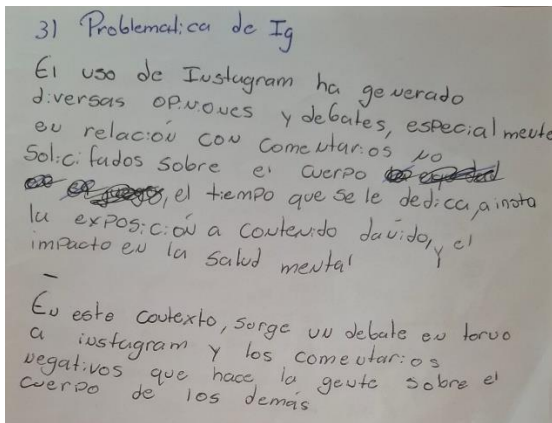 3) Problematica de Ig
El uso de Instagram ha generado
diversas opiniones y debates, especialmente
en relación con comentarios no
solicitados sobre el cuerpo
, el tiempo que se le dedica, a insta
la exposición a contenido dañido, y el
impacto en la salud mental
En este contexto, surge un debate en torno
a instagram y los comentarios
negativos que hace la gente sobre el
cuerpo de los demás